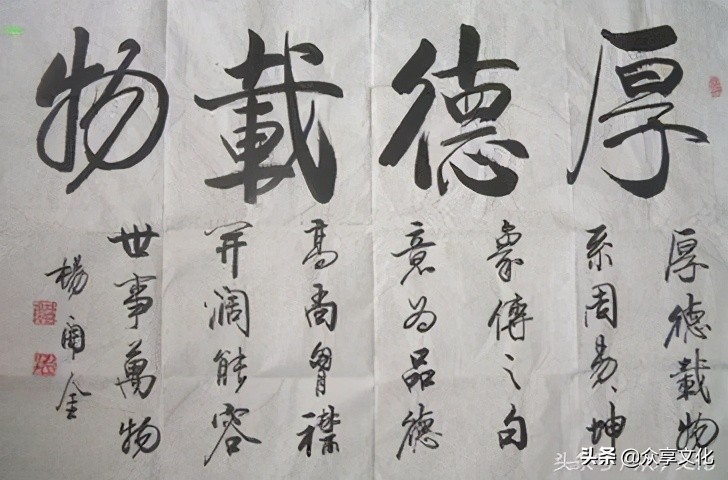 厚德載物
厚德載物
系周易、坤
象傳之句
意为品德
高尚胸襟
开濶能容
世事萬物
楊 金
头条 @众享文化